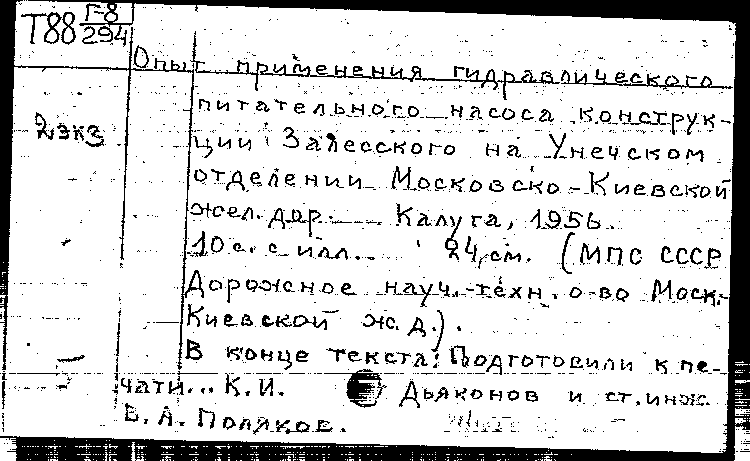 Т88 Г-8
294
Опыт применения гидравлического
питательного насоса конструк-
2 экз
ции Залесского на Унечском
отделении Московско-Киевской
жел. дор. Калуга, 1956.
10 с. с илл. 24 см. (МПС СССР
Дорожное науч.-техн. о-во Моск.-
Киевской ж.д.).
В конце текста: Подготовили к пе-
чати... К.И. Дьяконов и ст. инж.
В.А. Поляков.